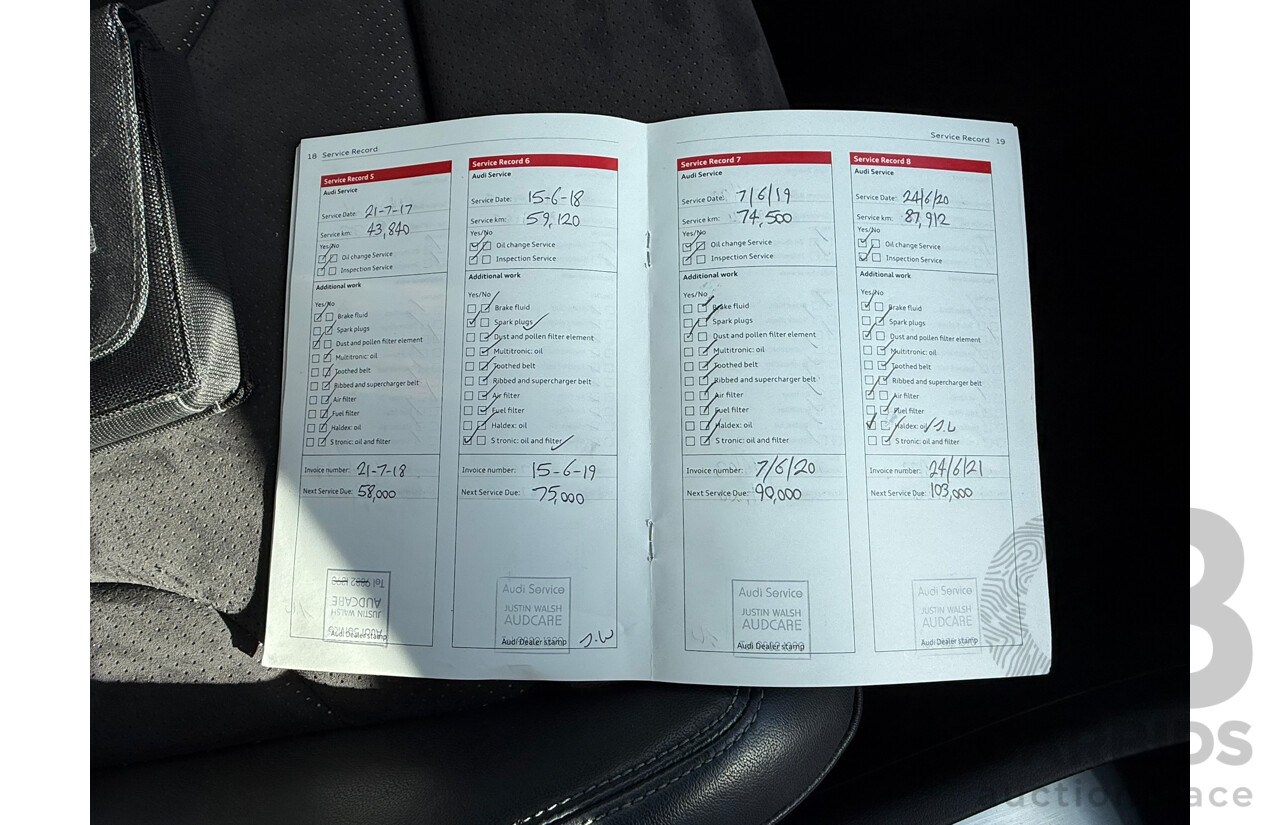 18 Service Record
Service Record 5
Audi Service
Service Date: 21-7-17
Service km: 43,840
Yes/No
Oil change Service
Inspection Service
Additional work
Yes/No
Brake fluid
Spark plugs
Dust and pollen filter element
Multitronic: oil
Toothed belt
Ribbed and supercharger belt
Air filter
Fuel filter
Haldex: oil
S tronic: oil and filter
Invoice number: 21-7-18
Next Service Due: 58,000
Audi Service
JUSTIN WALSH
AUDCARE
Audi Dealer stamp
Service Record 6
Audi Service
Service Date: 15-6-18
Service km: 59,120
Yes/No
Oil change Service
Inspection Service
Additional work
Yes/No
Brake fluid
Spark plugs
Dust and pollen filter element
Multitronic: oil
Toothed belt
Ribbed and supercharger belt
Air filter
Fuel filter
Haldex: oil
S tronic: oil and filter
Invoice number: 15-6-19
Next Service Due: 75,000
Audi Service
JUSTIN WALSH
AUDCARE
Audi Dealer stamp J.W
Service Record 19
Service Record 7
Audi Service
Service Date: 7/6/19
Service km: 74,500
Yes/No
Oil change Service
Inspection Service
Additional work
Yes/No
Brake fluid
Spark plugs
Dust and pollen filter element
Multitronic: oil
Toothed belt
Ribbed and supercharger belt
Air filter
Fuel filter
Haldex: oil
S tronic: oil and filter
Invoice number: 7/6/20
Next Service Due: 90,000
Audi Service
JUSTIN WALSH
AUDCARE
Audi Dealer stamp
Service Record 8
Audi Service
Service Date: 24/6/20
Service km: 87,912
Yes/No
Oil change Service
Inspection Service
Additional work
Yes/No
Brake fluid
Spark plugs
Dust and pollen filter element
Multitronic: oil
Toothed belt
Ribbed and supercharger belt
Air filter
Fuel filter
Haldex: oil J.W
S tronic: oil and filter
Invoice number: 24/6/21
Next Service Due: 103,000
Audi Service
JUSTIN WALSH
AUDCARE
Audi Dealer stamp